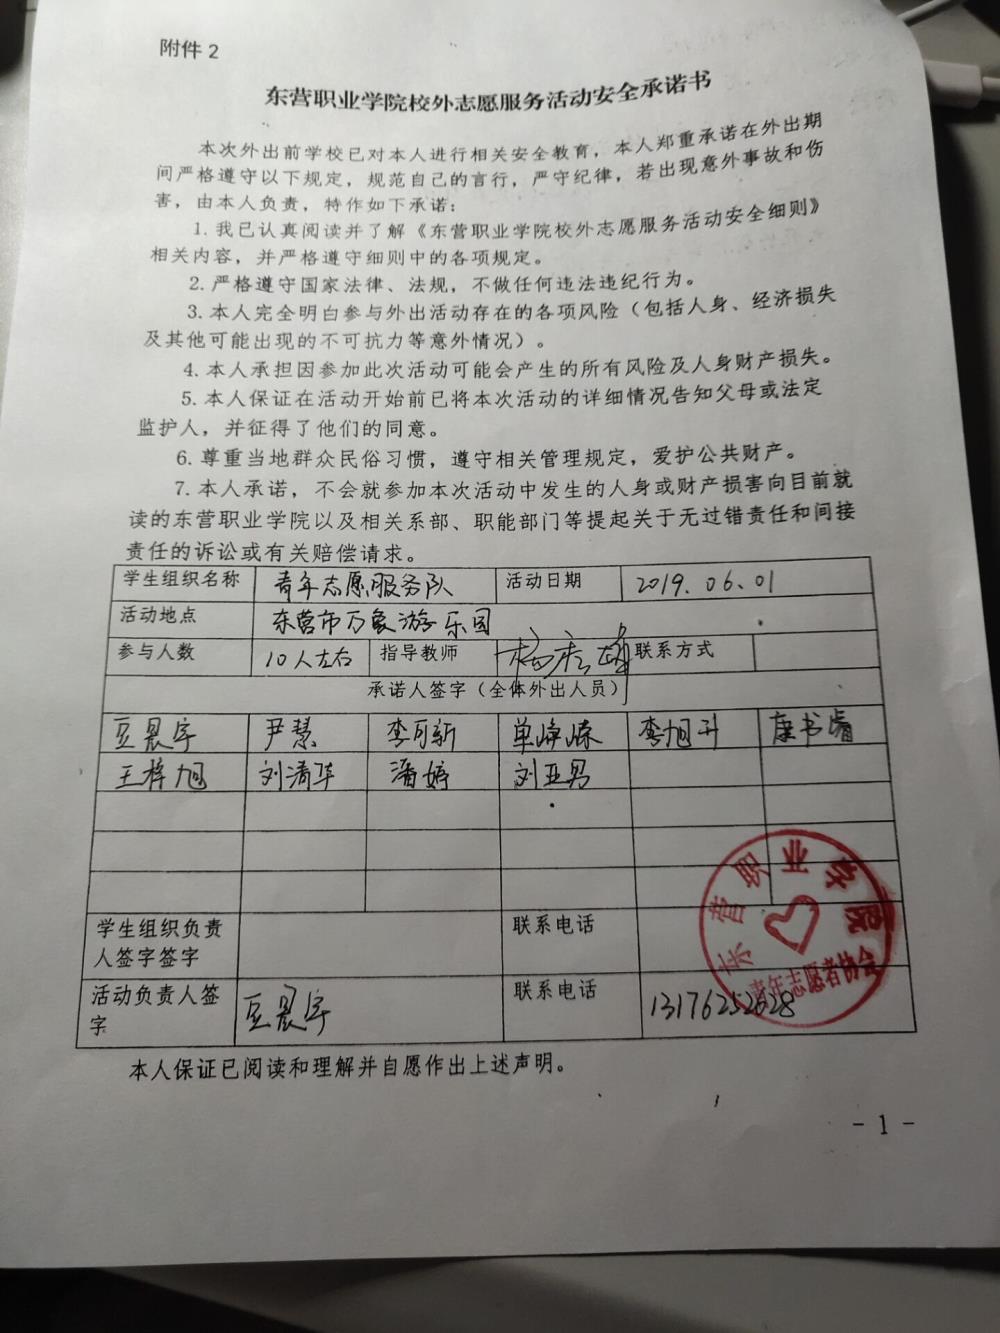 附件2
东营职业学院校外志愿服务活动安全承诺书
本次外出前学校已对本人进行相关安全教育，本人郑重承诺在外出期
间严格遵守以下规定，规范自己的言行，严守纪律，若出现意外事故和伤
害，由本人负责，特作如下承诺：
1.我已认真阅读并了解《东营职业学院校外志愿服务活动安全细则》
相关内容，并严格遵守细则中的各项规定。
2.严格遵守国家法律、法规，不做任何违法违纪行为。
3.本人完全明白参与外出活动存在的各项风险（包括人身、经济损失
及其他可能出现的不可抗力等意外情况）。
4.本人承担因参加此次活动可能会产生的所有风险及人身财产损失。
5.本人保证在活动开始前已将本次活动的详细情况告知父母或法定
监护人，并征得了他们的同意。
6.尊重当地群众民俗习惯，遵守相关管理规定，爱护公共财产。
7.本人承诺，不会就参加本次活动中发生的人身或财产损害向目前就
读的东营职业学院以及相关系部、职能部门等提起关于无过错责任和间接
责任的诉讼或有关赔偿请求。
学生组织名称 青年志愿服务队 活动日期 2019.06.01
活动地点 东营市万象游乐园
参与人数 10人左右 指导教师 联系方式
承诺人签字（全体外出人员）
豆晨宇 尹慧 李可新 单峥嵘 李旭升 康书睿
王梓旭 刘清华 潘婷 刘亚男
东营职业学院
青年志愿者协会
学生组织负责
人签字签字 联系电话
活动负责人签
字 豆晨宇 联系电话 13176252628
本人保证已阅读和理解并自愿作出上述声明。
- 1 -